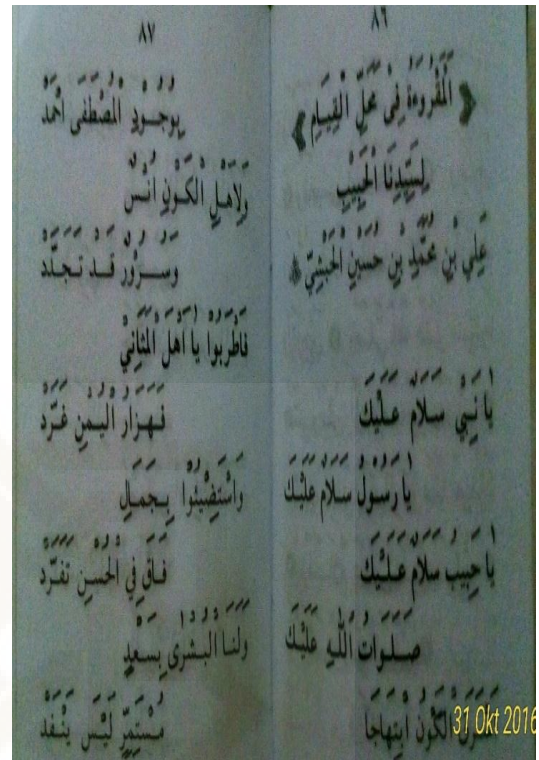 ٨٦
﴿ اَلْمَقْرُوءَةُ فِى مَحَلِّ الْقِيَامِ ﴾
لِسَيِّدِنَا الْحَبِيبِ
عَلِي بْنِ مُحَمَّدِ بْنِ حُسَيْنِ الْحَبْشِيّ
يَا نَبِي سَلَامٌ عَلَيْكَ
يَا رَسُولْ سَلَامٌ عَلَيْكَ
يَا حَبِيبْ سَلَامٌ عَلَيْكَ
صَلَوَاتُ اللهِ عَلَيْكَ
الْكَوْنُ ابْتِهَاجَا
31 Okt 2016
٨٧
بِوُجُودِ الْمُصْطَفَى احْمَدْ
وَلِاَهْلِ الْكَوْنِ اُنْسٌ
وَسُرُورٌ قَدْ تَجَدَّدْ
فَاطْرَبُوا يَا اَهْلَ الْمَثَانِيْ
فَهَزَارُ الْيُمْنِ غَرَّدْ
وَاسْتَضِيْئُوا بِجَمَالٍ
فَاقَ فِي الْحُسْنِ تَفَرَّدْ
وَلَنَا الْبُشْرٰى بِسَعْدٍ
مُسْتَمِرٍّ لَيْسَ يَنْفَدْ